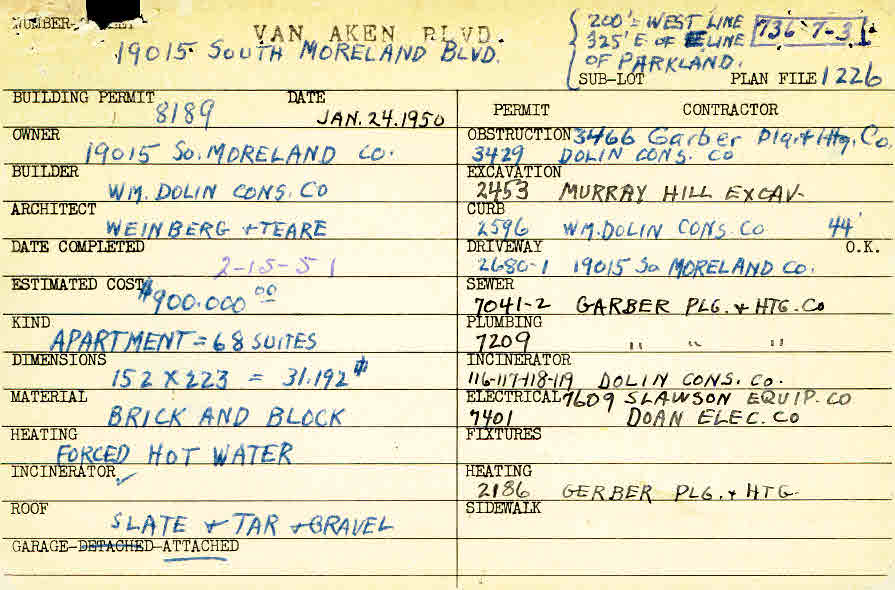 NUMBER-STREET
VAN AKEN BLVD.
19015 SOUTH MORELAND BLVD.
200' = WEST LINE
325' E OF E LINE
OF PARKLAND.
736 7-3
SUB-LOT PLAN FILE 1226
BUILDING PERMIT DATE
8189 JAN. 24. 1950
OWNER
19015 So. MORELAND Co.
BUILDER
WM. DOLIN CONS. CO
ARCHITECT
WEINBERG + TEARE
DATE COMPLETED
2-15-51
ESTIMATED COST
$900.000 00
KIND
APARTMENT = 68 SUITES
DIMENSIONS
152 X 223 = 31.192 #
MATERIAL
BRICK AND BLOCK
HEATING
FORCED HOT WATER
INCINERATOR ✓
ROOF
SLATE + TAR + GRAVEL
GARAGE-DETACHED-ATTACHED
PERMIT CONTRACTOR
OBSTRUCTION 3466 Garber Plg. + Htg. Co.
3429 DOLIN CONS. CO
EXCAVATION
2453 MURRAY HILL EXCAV-
CURB
2596 WM. DOLIN CONS. CO 44'
DRIVEWAY O.K.
2680-1 19015 So MORELAND Co.
SEWER
7041-2 GARBER PLG. + HTG. Co
PLUMBING
7209 " " "
INCINERATOR
116-117-118-119 DOLIN CONS. Co.
ELECTRICAL 7609 SLAWSON EQUIP. CO
7401 DOAN ELEC. CO
FIXTURES
HEATING
2186 GERBER PLG. + HTG.
SIDEWALK